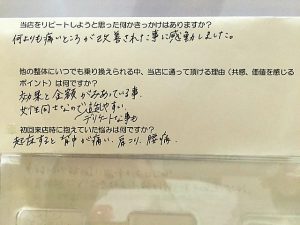 当店をリピートしようと思った何かきっかけはありますか？
何よりも痛いところが改善された事に感動しました。
他の整体にいつでも乗り換えられる中、当店に通って頂ける理由（共感、価値を感じる
ポイント）は何ですか？
効果と金額がみあっている事
女性同士なので通いやすい
デリケートな事も
初回来店時に抱えていた悩みは何ですか？
起床すると背中が痛い、肩こり、腰痛